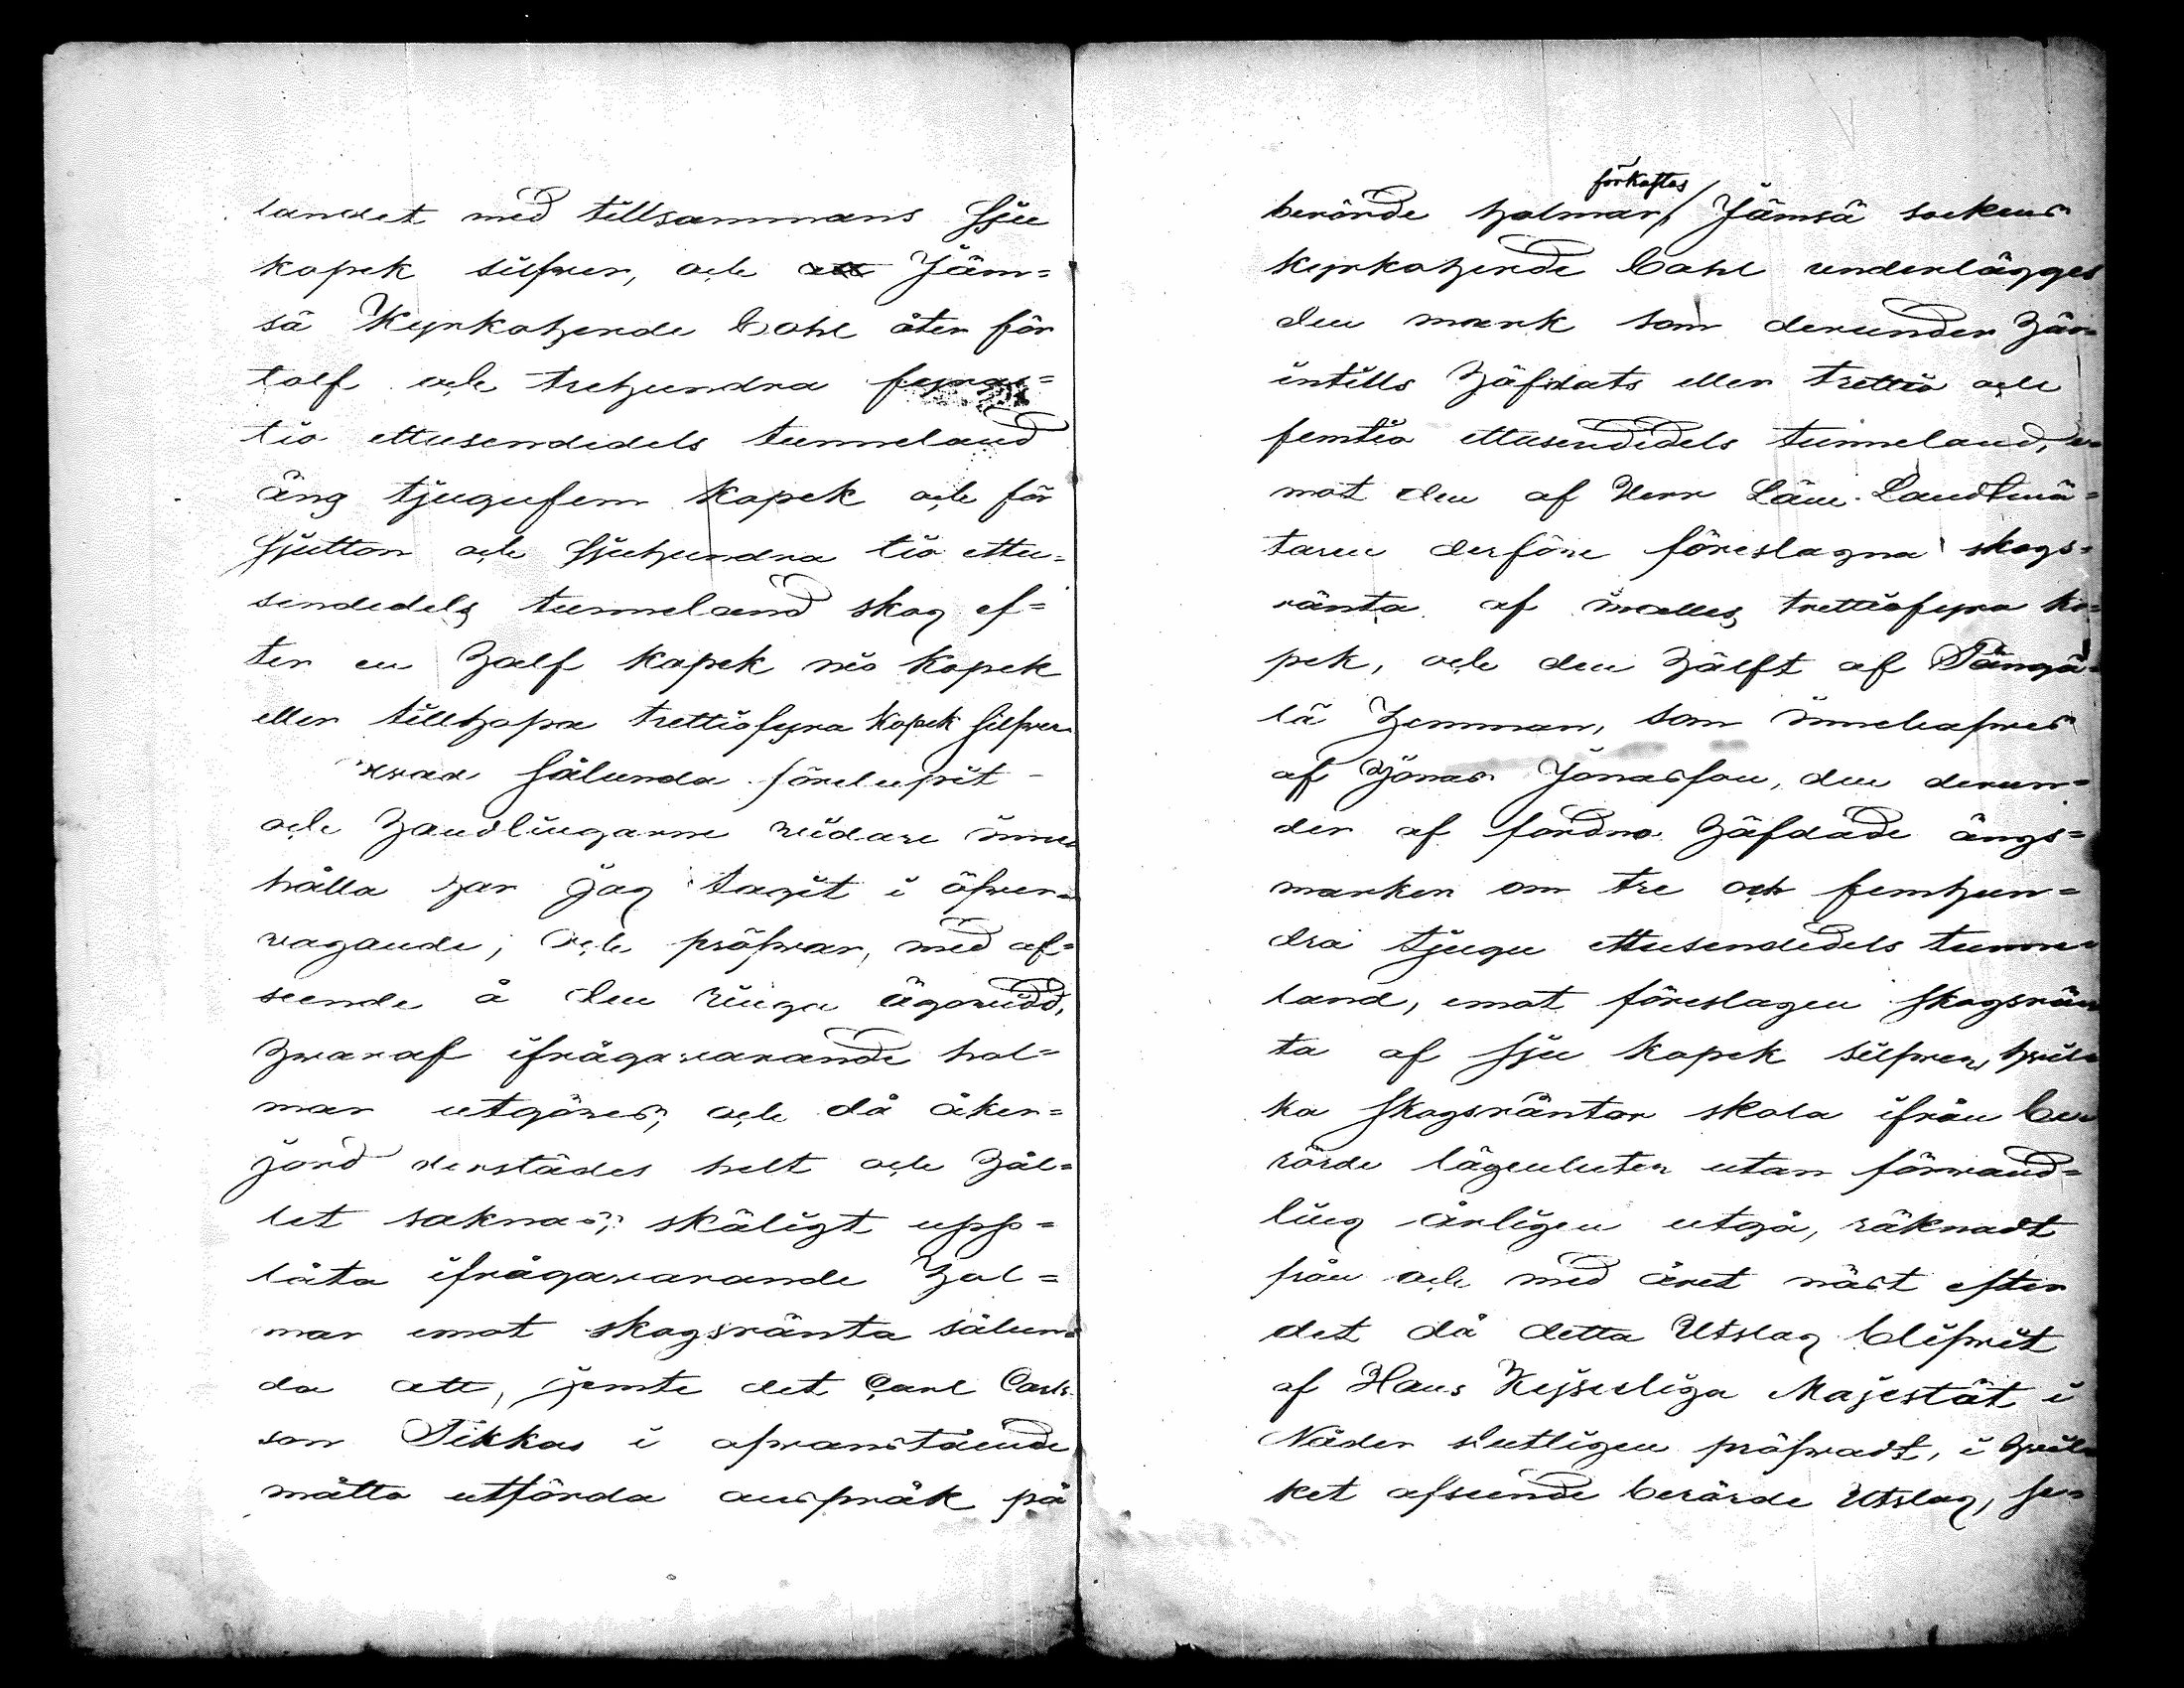 landet med tillsammans sju
kopek silfver, och Jäm=
sä Kyrkoherde Bohl åter för
tolf och trehundra fyra=
tio ettusendedels tunneland
äng tjugufem kopek och för
sjutton och sjuhundra tio ettu=
sendedels tunneland skog ef=
ter en half kopek nio kopek
eller tillhopa trettiofyra kopek silfver.
Hvad sålunda förelupit
och handlingarne vidare inne=
hålla har jag tagit i öfver=
vägande; och pröfvar, med af=
seende å den ringa ägovidd,
hvaraf ifrågavarande hol=
mar utgöres, och då åker=
jord derstädes helt och hål=
let saknas; skäligt upp=
låta ifrågavarande hol=
mar emot skogsränta sålun=
da att, jemte det Carl Carls=
son Tikkas i ofvanstående
måtto utförda anspråk på
berörde holmar förkastas / Jämsä sockens
kyrkoherde Bohl underlägges
den mark som derunder här=
intills häfdats eller trettio och
femtio ettusendedels tunneland, e=
mot den af Herr Läne Landtmä=
taren derföre föreslagna skogs=
ränta af inalles trettiofyra ko=
pek, och den hälft af Pängä=
lä hemman, som innehafves
af Jonas Jonasson, den derun=
der af fordna häfdade ängs=
marken om tre och femhun=
dra tjugu ettusendedels tunne=
land, emot föreslagen skogsrän=
ta af sju kopek silfver, hvil=
ka skogsräntor skola ifrån be=
rörde lägenheter utan förvand=
ling årligen utgå, räknadt
från och med året näst efter
det då detta Utslag blifvit
af Hans Kejserliga Majestät i
Nåder slutligen pröfvadt, i hvil=
ket afseende berörde Utslag, se=